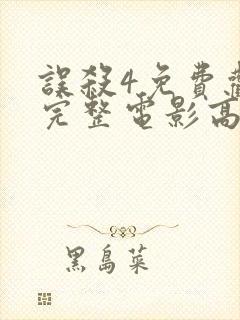 誤殺4免費
完整電影高
黑島菜